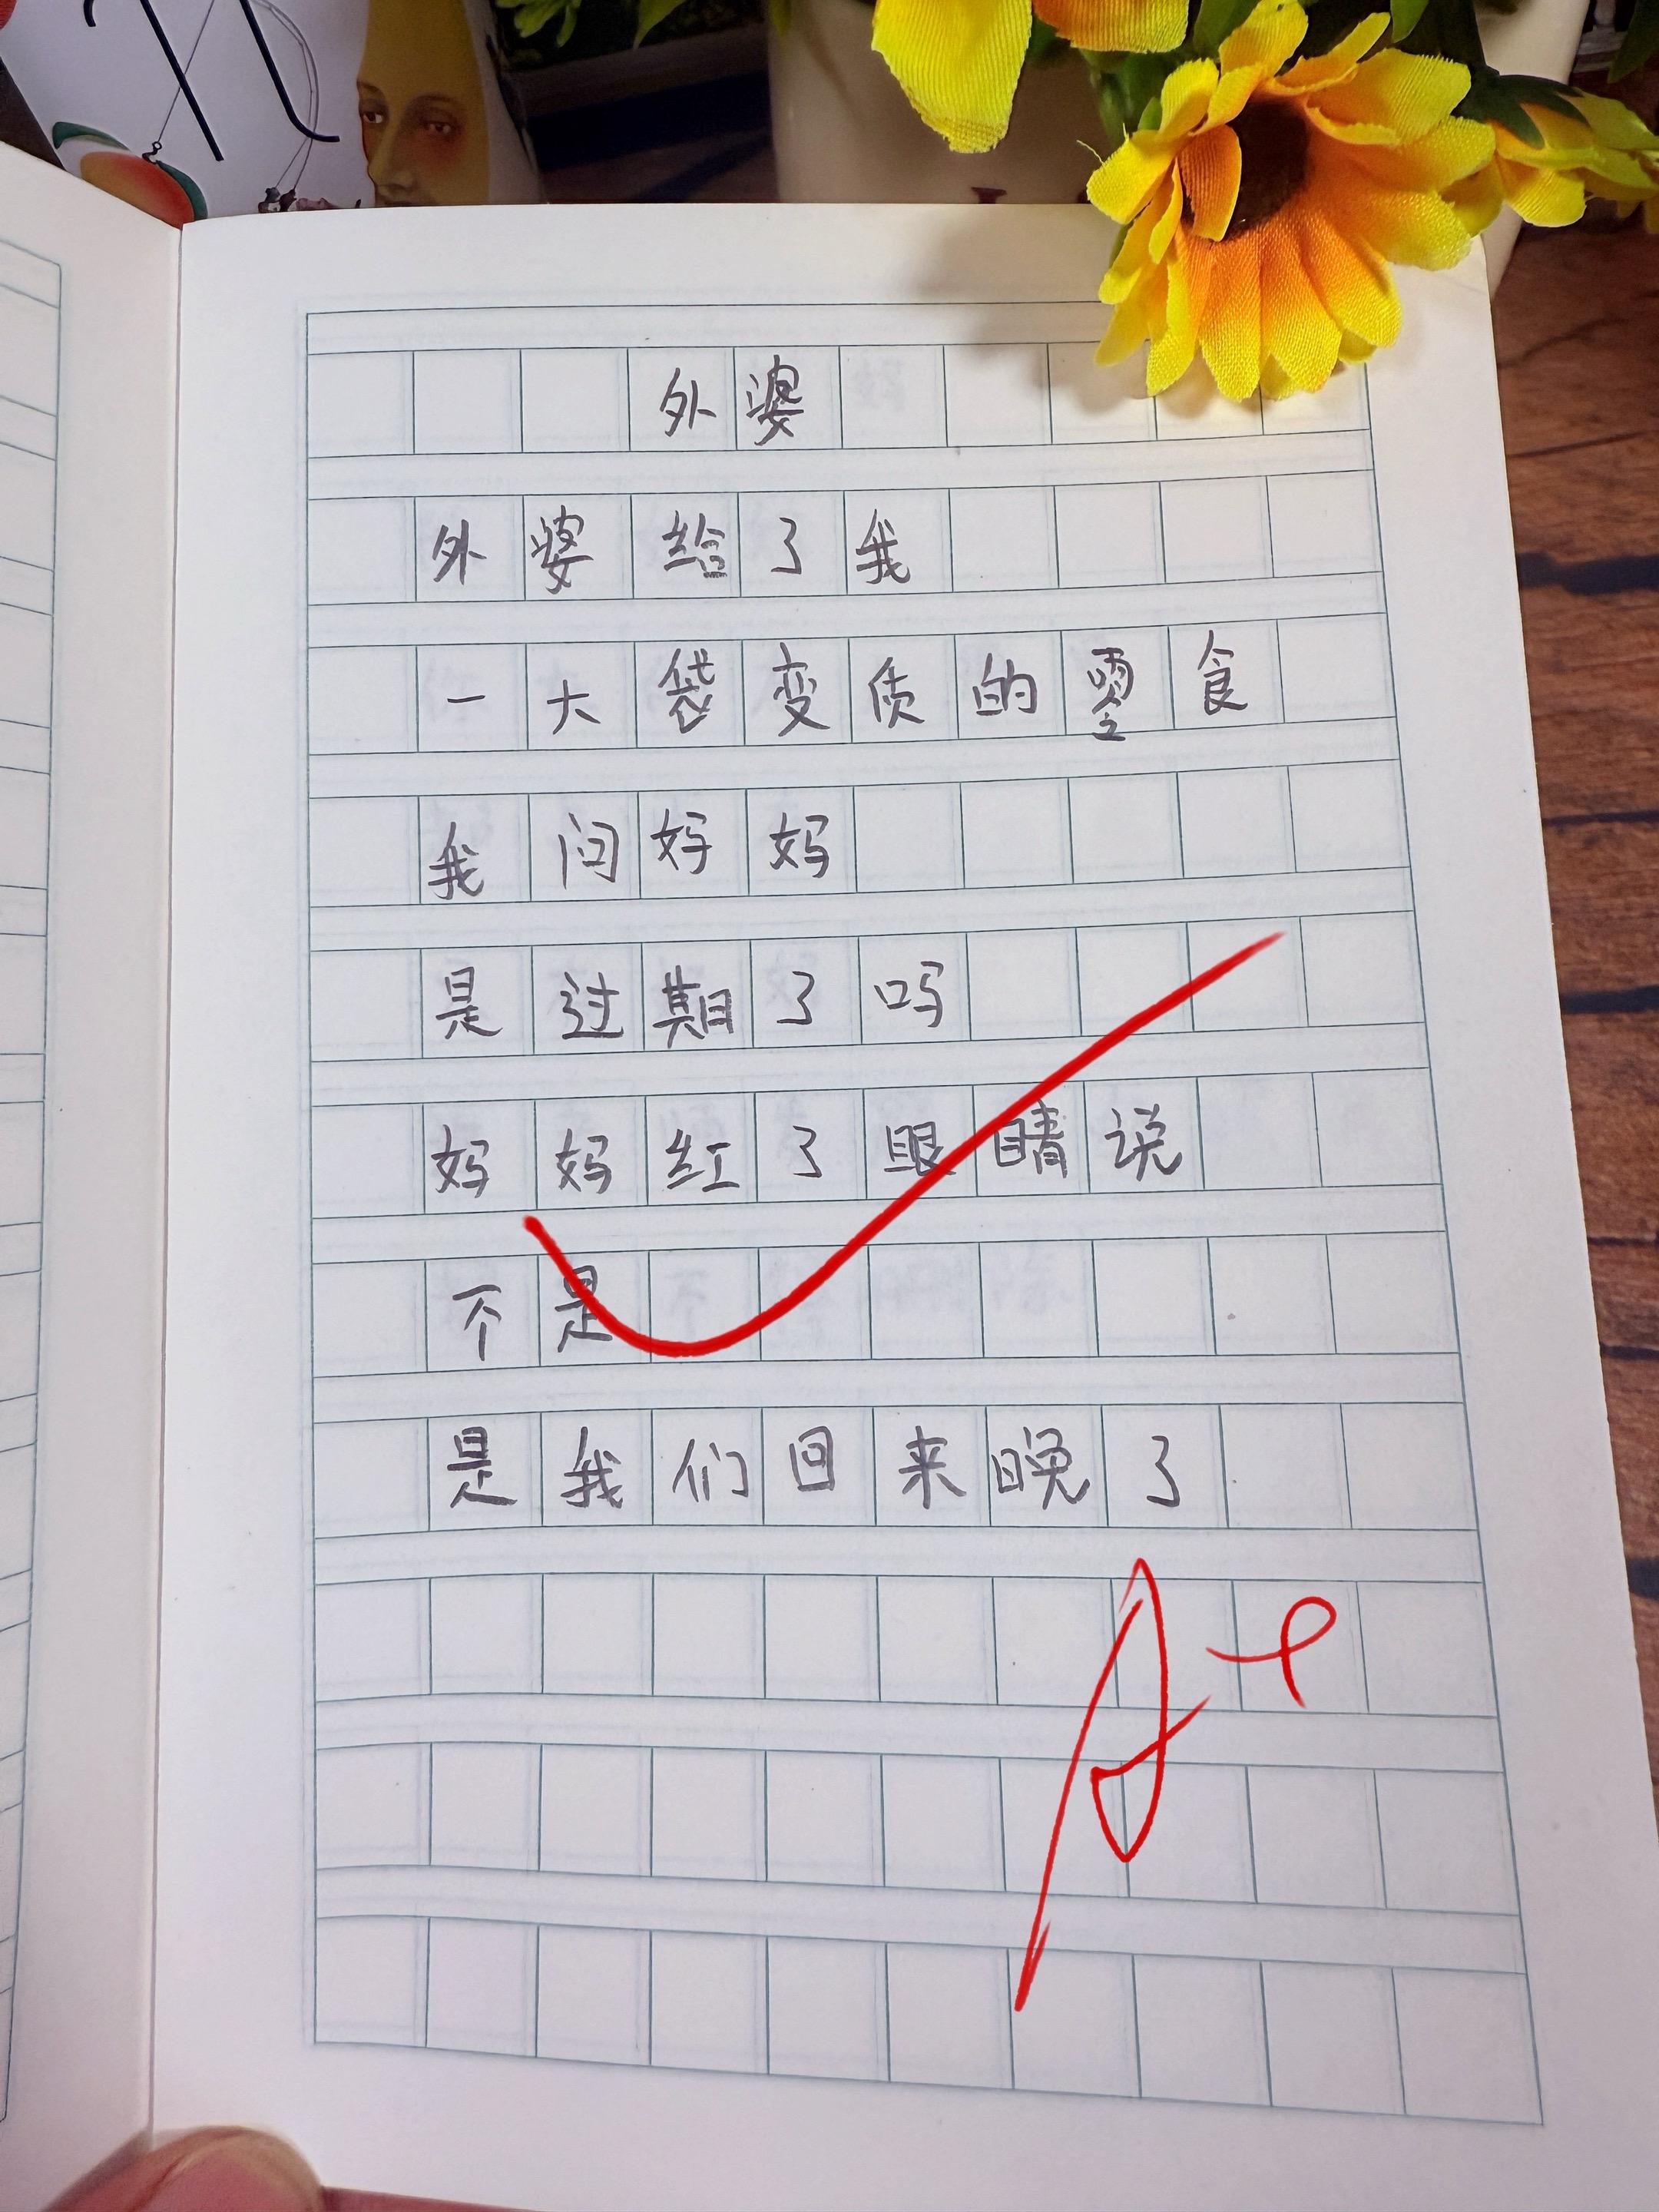 外婆
外婆给了我
一大袋变质的零食
我问妈妈
是过期了吗
妈妈红了眼睛说
不是
是我们回来晚了
A+